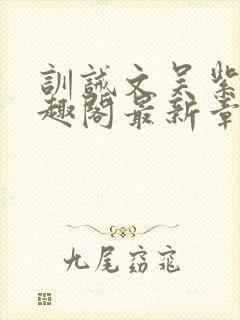 訓誡文吴紫
趣閣最新章
九尾窈窕